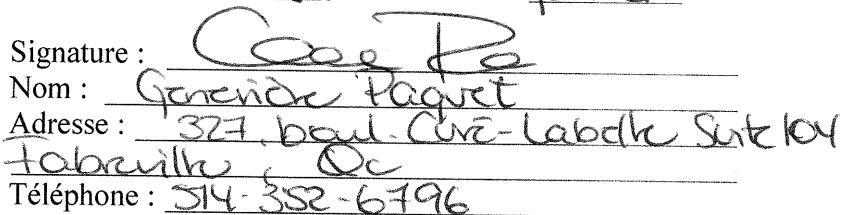 Signature :
Nom : Geneviève Paquet
Adresse : 327, boul. Curé-Labelle Suite 104
Fabreville, Qc
Téléphone : 514-352-6796